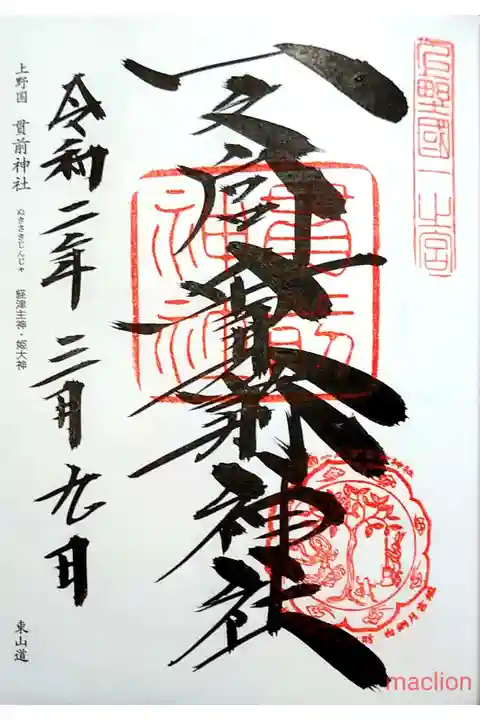 上野國一之宮
一之宮貫前神社
貫前神社
令和二年三月九日
上野国 貫前神社 ぬきさきじんじゃ 経津主神・姫大神
東山道
maclion